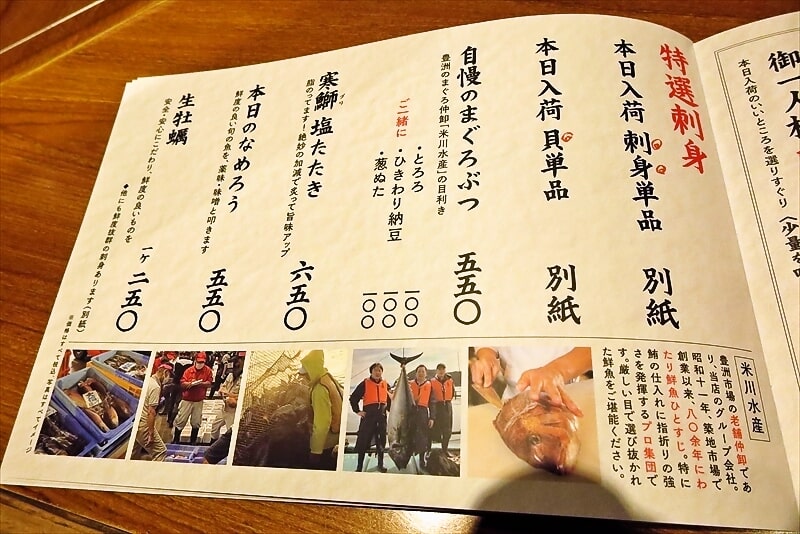 御一人
本日入荷のいいところを選りすぐり〈少量
特選刺身
本日入荷 刺身単品 別紙
本日入荷 貝単品 別紙
自慢のまぐろぶつ 五五〇
豊洲のまぐろ仲卸「米川水産」の目利き
ご一緒に
・とろろ 一〇〇
・ひきわり納豆 一〇〇
・葱ぬた 一〇〇
寒鰤 塩たたき 六五〇
ブリ
脂のってます!絶妙の加減で炙って旨味アップ
本日のなめろう 五五〇
鮮度の良い旬の魚を、薬味・味噌と叩きます
生牡蠣 一ケ 二五〇
安全・安心にこだわり、鮮度の良いものを
◆他にも鮮度抜群の刺身あります(別紙)
※価格はすべて税込、写真はすべてイメージ
米川水産
豊洲市場の老舗仲卸であ
り、当店のグループ会社。
昭和十一年、築地市場で
創業以来、八〇余年にわ
たり鮮魚ひとすじ。特に
鮪の仕入れに指折りの強
さを発揮するプロ集団で
す。厳しい目で選び抜かれ
た鮮魚をご堪能ください。